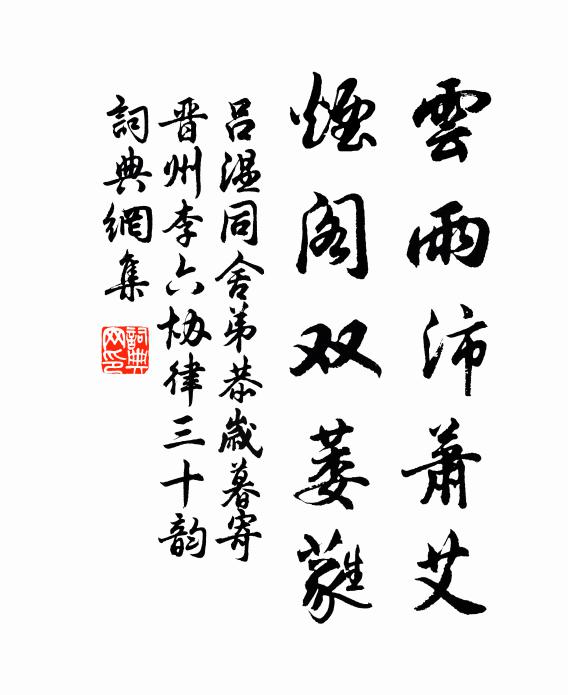 雲雨沛蕭艾
煙阁双萎蕤
吕温同舍弟恭歲暮寄
晋州李六协律三十韵
詞典網集
詞典网印